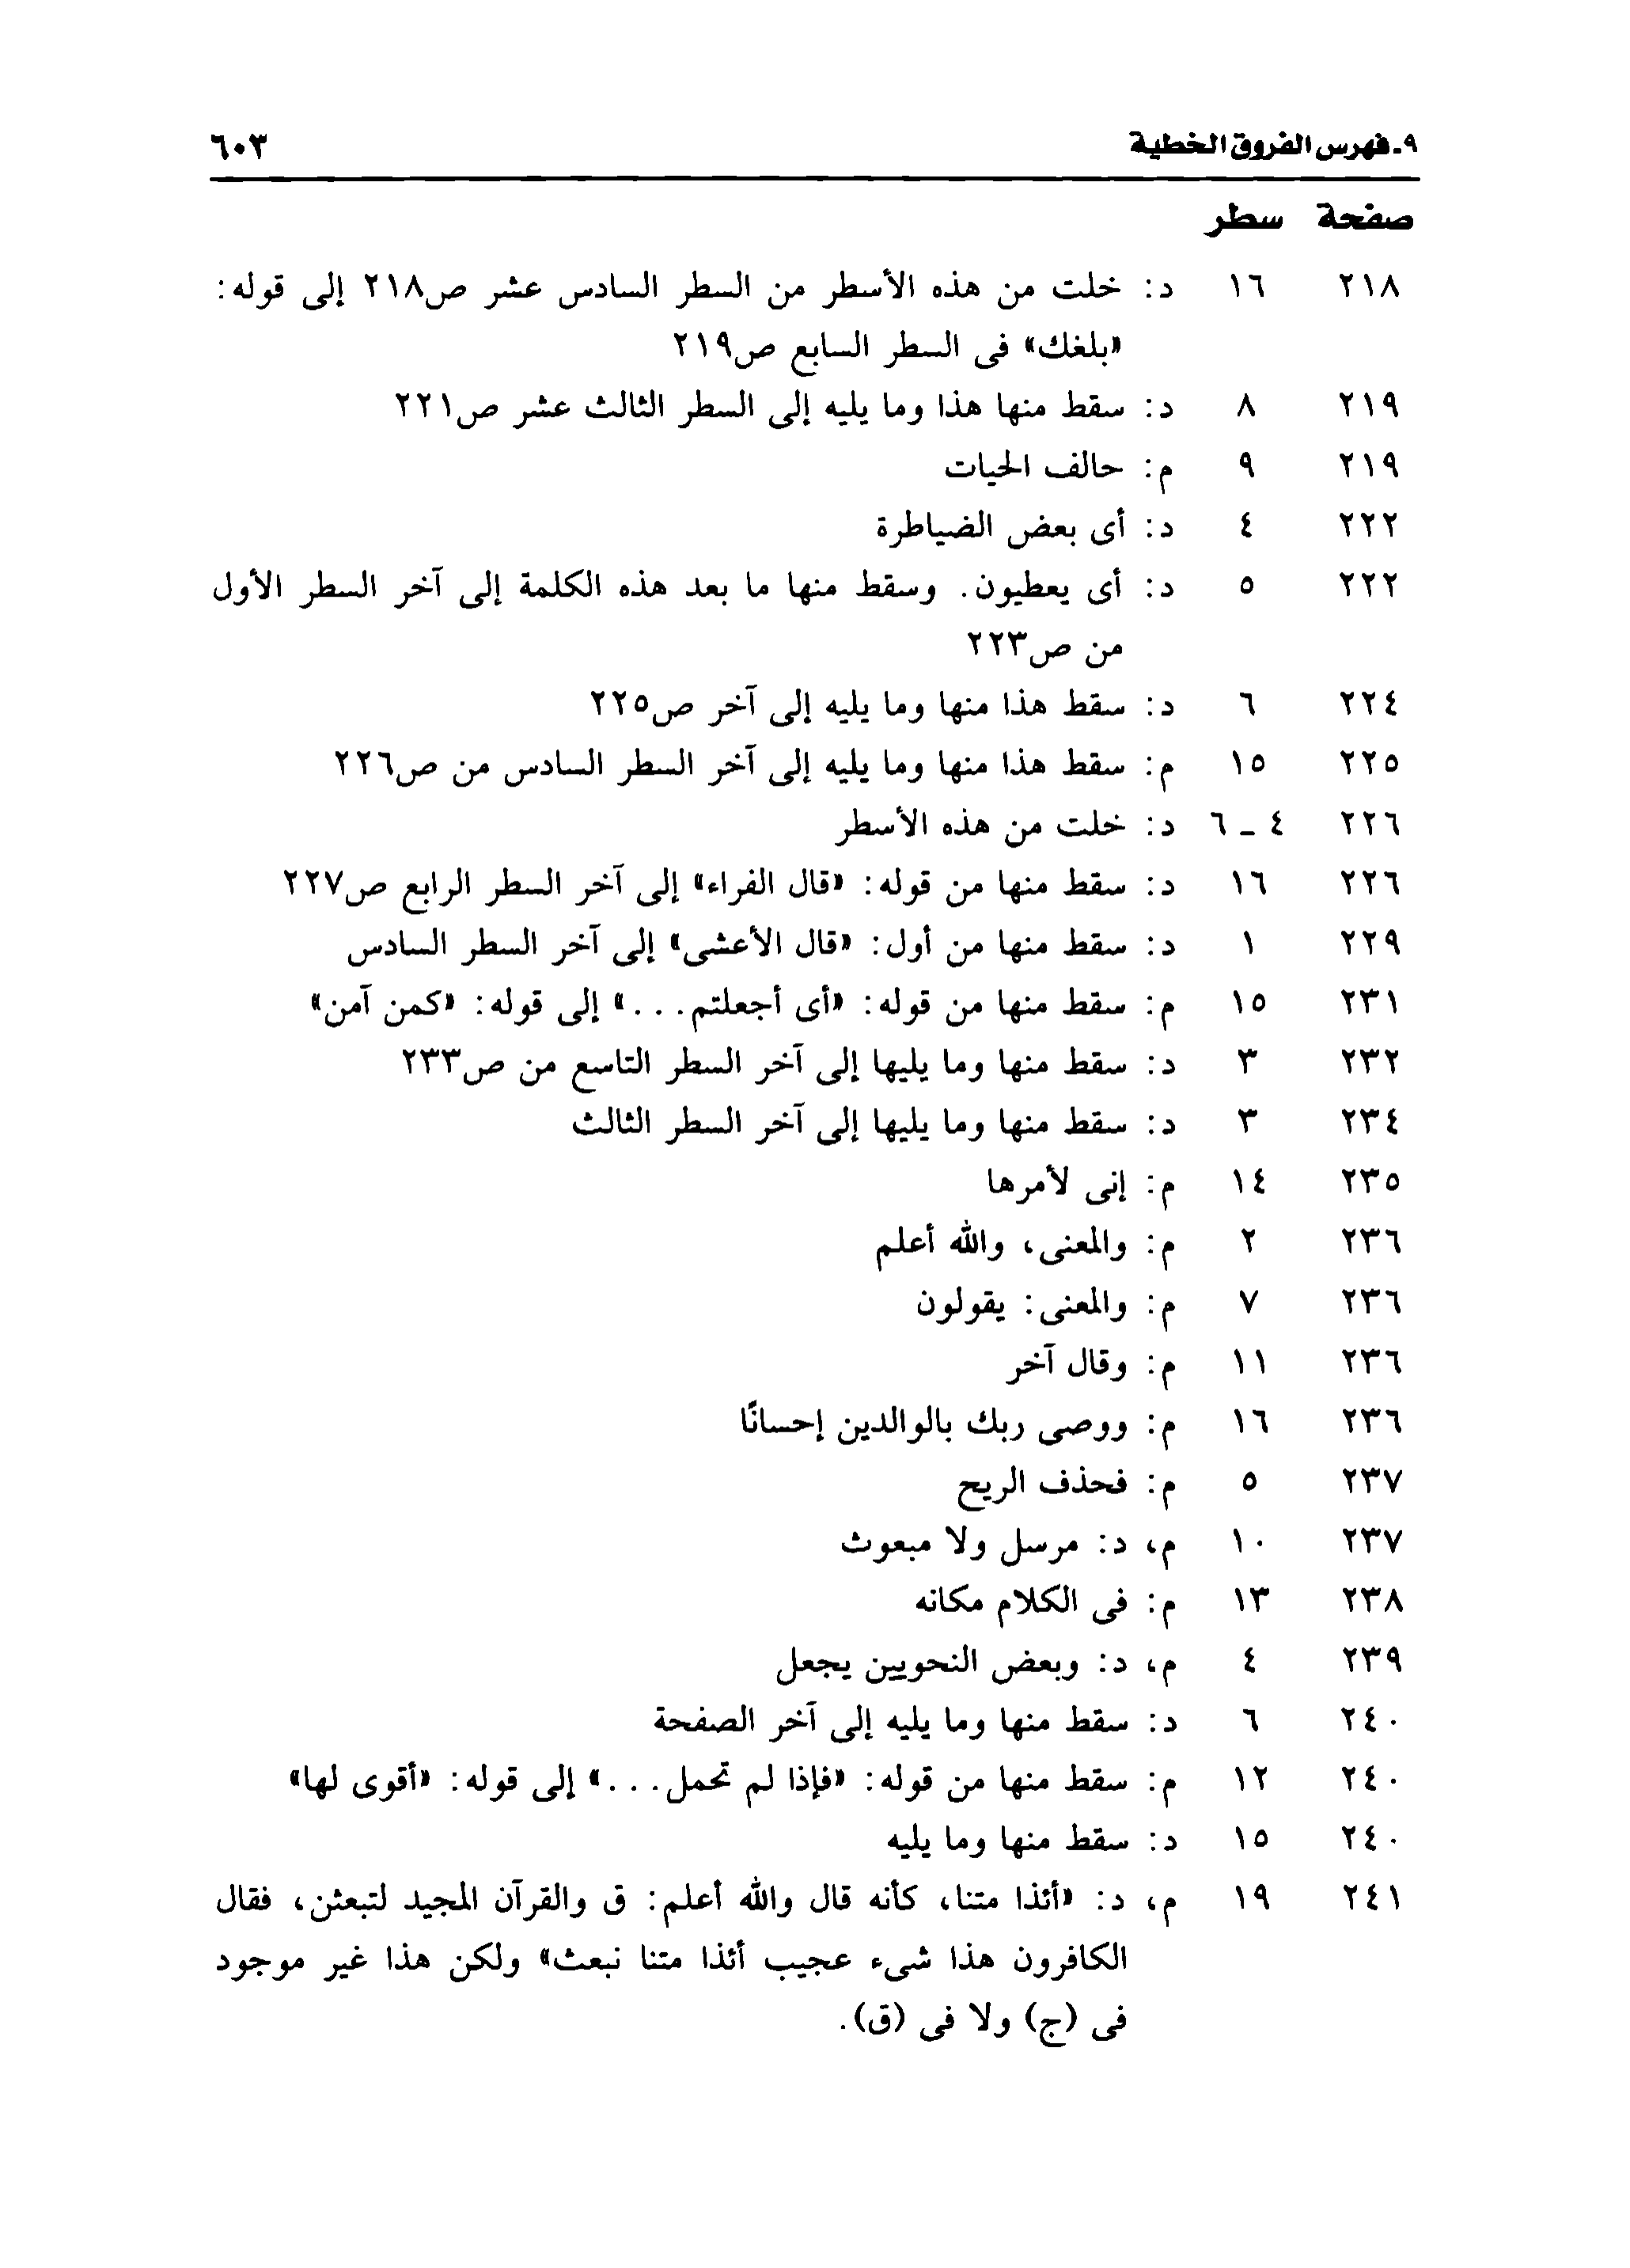 ٩ـ فهرس الفروق الخطية ٦٠٣
صفحة سطر
٢١٨ ١٦ د: خلت من هذه الأسطر من السطر السادس عشر ص٢١٨ إلى قوله:
«بلغك» فى السطر السابع ص٢١٩
٢١٩ ٨ د: سقط منها هذا وما يليه إلى السطر الثالث عشر ص٢٢١
٢١٩ ٩ م: حالف الحيات
٢٢٢ ٤ د: أى بعض الضياطرة
٢٢٢ ٥ د: أى يعطيون. وسقط منها ما بعد هذه الكلمة إلى آخر السطر الأول
من ص٢٢٣
٢٢٤ ٦ د: سقط هذا منها وما يليه إلى آخر ص٢٢٥
٢٢٥ ١٥ م: سقط هذا منها وما يليه إلى آخر السطر السادس من ص٢٢٦
٢٢٦ ٤ ـ ٦ د: خلت من هذه الأسطر
٢٢٦ ١٦ د: سقط منها من قوله: «قال الفراء» إلى آخر السطر الرابع ص٢٢٧
٢٢٩ ١ د: سقط منها من أول: «قال الأعشى» إلى آخر السطر السادس
٢٣١ ١٥ م: سقط منها من قوله: «أى أجعلتم. . .» إلى قوله: «كمن آمن»
٢٣٢ ٣ د: سقط منها وما يليها إلى آخر السطر التاسع من ص٢٣٣
٢٣٤ ٣ د: سقط منها وما يليها إلى آخر السطر الثالث
٢٣٥ ١٤ م: إنى لأمرها
٢٣٦ ٢ م: والمعنى، والله أعلم
٢٣٦ ٧ م: والمعنى: يقولون
٢٣٦ ١١ م: وقال آخر
٢٣٦ ١٦ م: ووصى ربك بالوالدين إحسانًا
٢٣٧ ٥ م: فحذف الريح
٢٣٧ ١٠ م، د: مرسل ولا مبعوث
٢٣٨ ١٣ م: فى الكلام مكانه
٢٣٩ ٤ م، د: وبعض النحويين يجعل
٢٤٠ ٦ د: سقط منها وما يليه إلى آخر الصفحة
٢٤٠ ١٢ م: سقط منها من قوله: «فإذا لم تحمل. . .» إلى قوله: «أقوى لها»
٢٤٠ ١٥ د: سقط منها وما يليه
٢٤١ ١٩ م، د: «أئذا متنا، كأنه قال والله أعلم: ق والقرآن المجيد لتبعثن، فقال
الكافرون هذا شىء عجيب أئذا متنا نبعث» ولكن هذا غير موجود
فى (ج) ولا فى (ق).